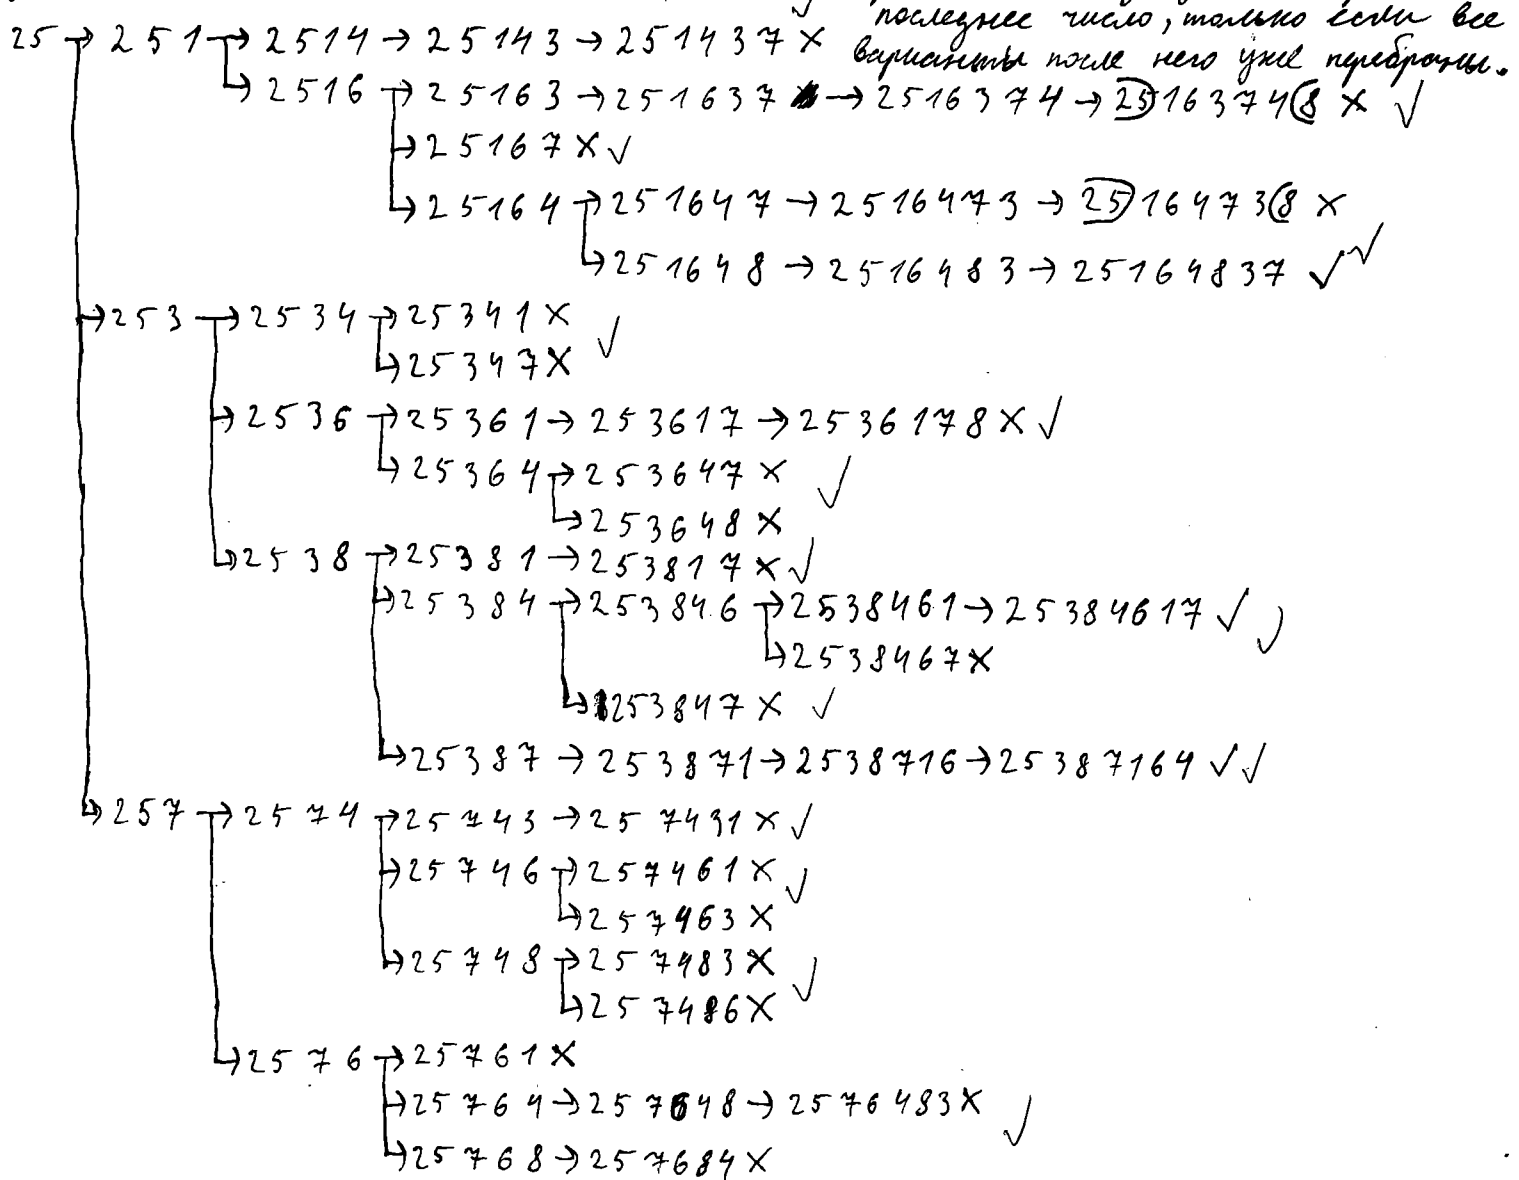 последнее число, только если все
25 → 251 → 2514 → 25143 → 251437 × варианты после него уже перебраны.
→ 2516 → 25163 → 251637 → 2516374 → 25163748 × ✓
→ 25167 × ✓
→ 25164 → 251647 → 2516473 → 25164738 ×
→ 251648 → 2516483 → 25164837 ✓ ✓
→ 253 → 2534 → 25341 × ✓
→ 25347 ×
→ 2536 → 25361 → 253617 → 2536178 × ✓
→ 25364 → 253647 × ✓
→ 253648 ×
→ 2538 → 25381 → 253817 × ✓
→ 25384 → 253846 → 2538461 → 25384617 ✓
→ 2538467 ×
→ 253847 × ✓
→ 25387 → 253871 → 2538716 → 25387164 ✓ ✓
→ 257 → 2574 → 25743 → 257431 × ✓
→ 25746 → 257461 × ✓
→ 257463 ×
→ 25748 → 257483 × ✓
→ 257486 ×
→ 2576 → 25761 ×
→ 25764 → 257648 → 2576483 × ✓
→ 25768 → 257684 ×